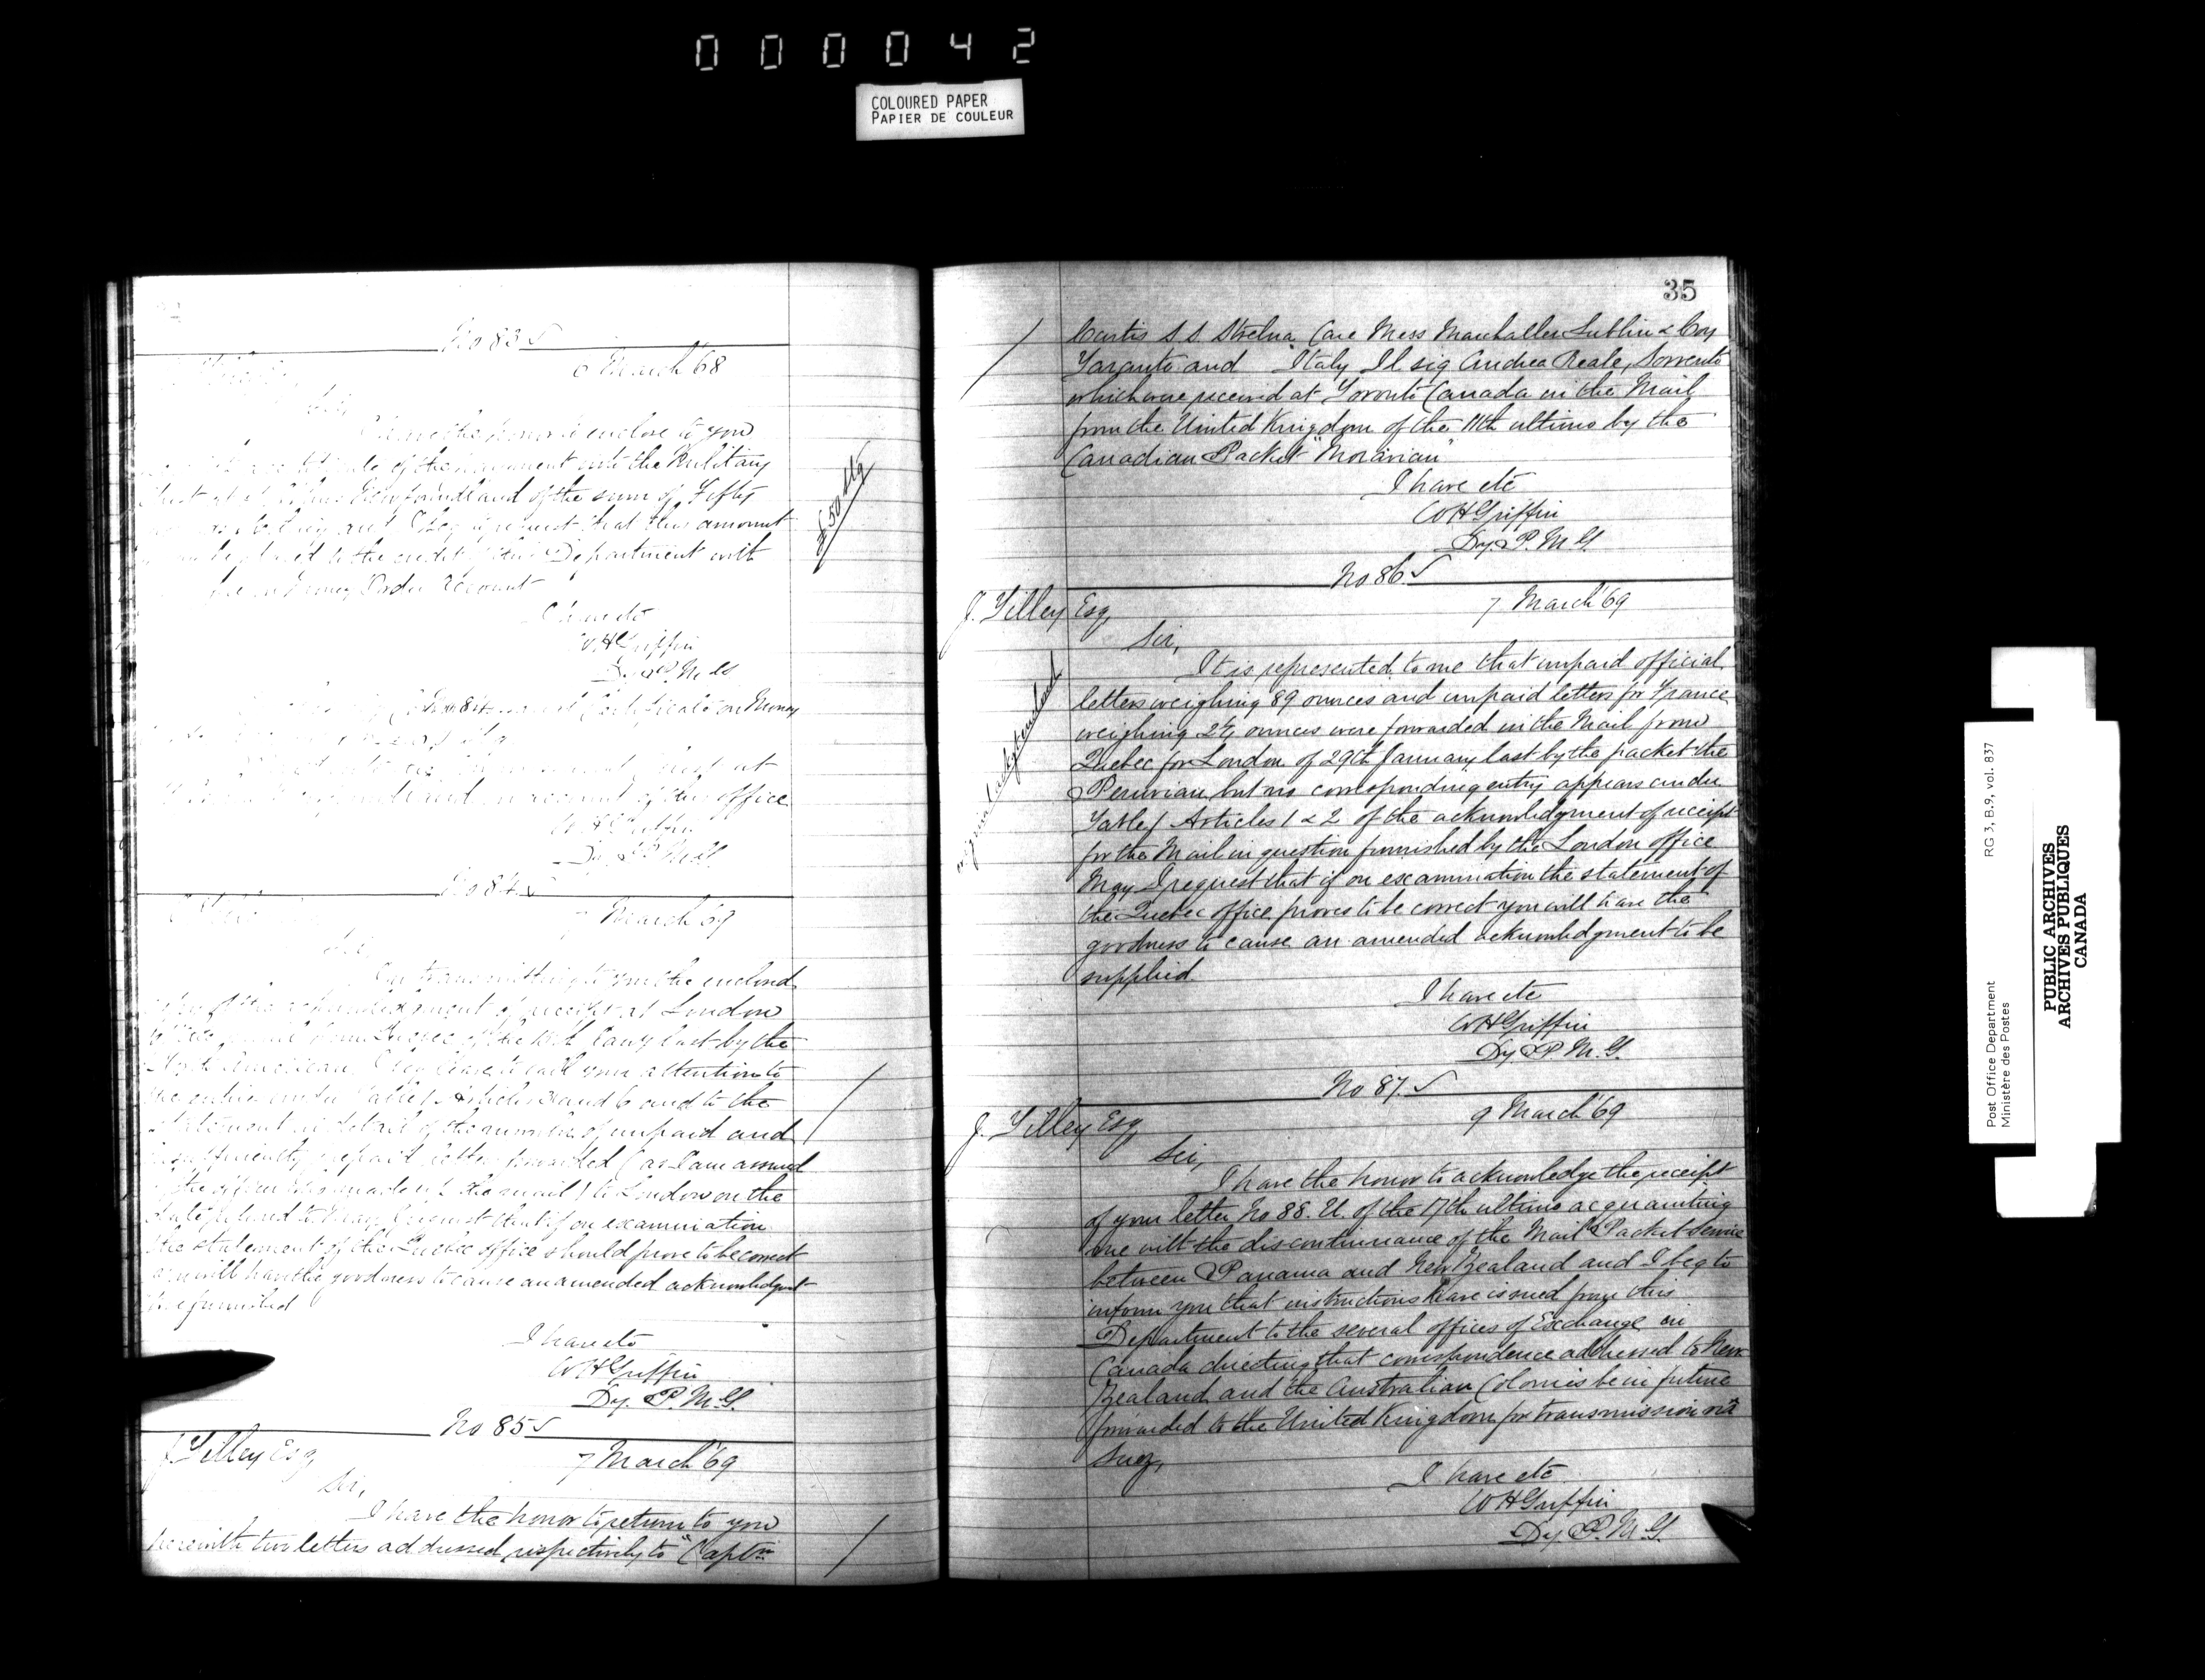 000042
COLOURED PAPER
PAPIER DE COULEUR
No 83
6 March '68
Sir,
I have the honor to enclose to you
of the payment into the Military
Chest at Newfoundland of the sum of Fifty
and I beg to request that this amount
be placed to the credit of this Department with
Money Order Account
£50 Stg
I have etc
W H Griffin
Dy P. M. G.
Certificate on Money
at
account of this office
W H Griffin
Dy P M G
No 84
7 March '69
Sir,
In transmitting to you the enclosed
copy of the acknowledgment of receipt at London
of the mail from Quebec of the Jany last by the
North American I beg leave to call your attention to
the entries under Table 1 Articles 3 and 6 and to the
statement in detail of the number of unpaid and
insufficiently prepaid letters forwarded (as I am assured
by the officer who made up the mail) to London on the
date referred to. May I request that if on examination
the statement of the Quebec office should prove to be correct
you will have the goodness to cause an amended acknowledgmt
to be furnished
I have etc
W H Griffin
Dy. P. M. G.
No 85
J Tilley Esq
7 March '69
Sir,
I have the honor to return to you
herewith two letters addressed respectively to "Captn
35
Curtis S. S. Strelna Care Mess Lublin & Coy
Taranto and Italy Il sig Andrea Reale, Sorrento
which were received at Toronto Canada in the Mail
from the United Kingdom of the 11th ultimo by the
Canadian Packet "Moravian"
I have etc
W H Griffin
Dy. P. M. G.
No 86
J. Tilley Esq,
7 March '69
Sir,
It is represented to me that unpaid official
letters weighing 89 ounces and unpaid letters for France
weighing ounces were forwarded in the Mail from
Quebec for London of 29th January last by the packet the
Peruvian, but no corresponding entry appears under
Table 1 Articles 1 & 2 of the acknowledgment of receipt
for the Mail in question furnished by the London office
May I request that if on examination the statement of
the Quebec office proves to be correct you will have the
goodness to cause an amended acknowledgment to be
supplied.
I have etc
W H Griffin
Dy. P. M. G.
No 87.
J. Tilley Esq
9 March '69
Sir,
I have the honor to acknowledge the receipt
of your letter No 88. U. of the 17th ultimo acquainting
me with the discontinuance of the Mail Packet Service
between Panama and New Zealand and I beg to
inform you that instructions have issued from this
Department to the several offices of Exchange in
Canada directing that correspondence addressed to New
Zealand and the Australian Colonies be in future
forwarded to the United Kingdom for transmission via
Suez,
I have etc
W H Griffin
Dy. P. M. G.
Post Office Department
Ministère des Postes
RG 3, B.9, vol. 837
PUBLIC ARCHIVES
ARCHIVES PUBLIQUES
CANADA